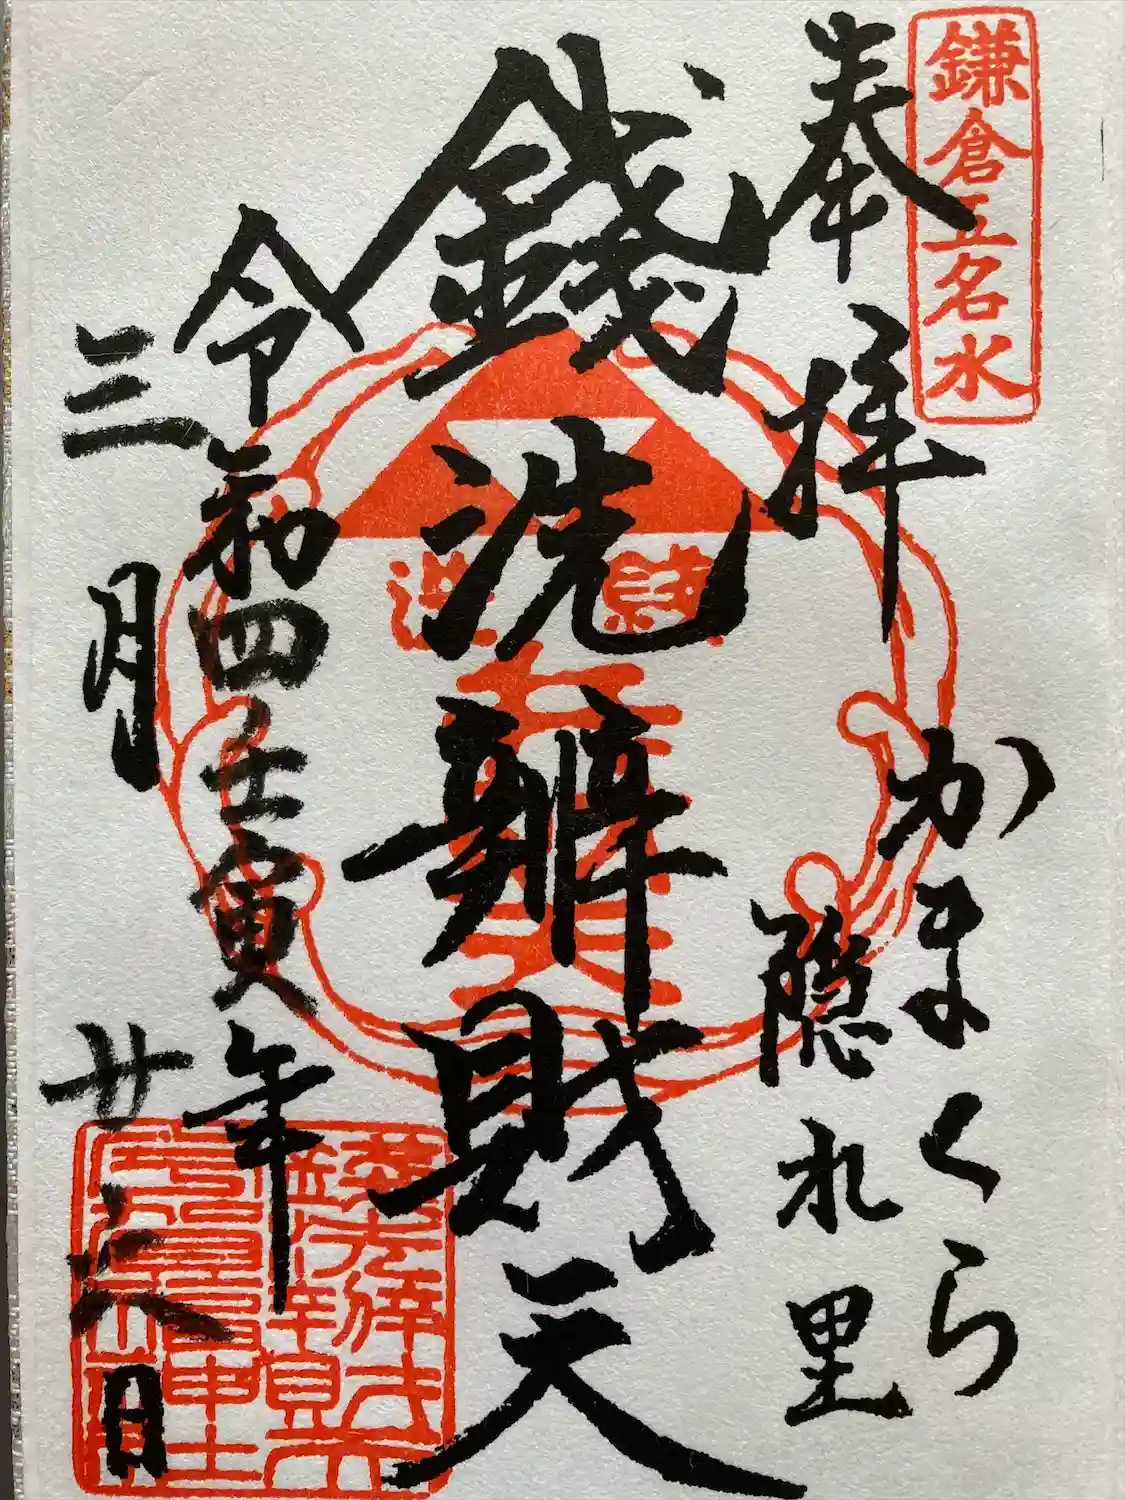 鎌倉五名水
奉拝
かまくら
隠れ里
錢洗辨財天
令和四壬寅年
三月廿六日